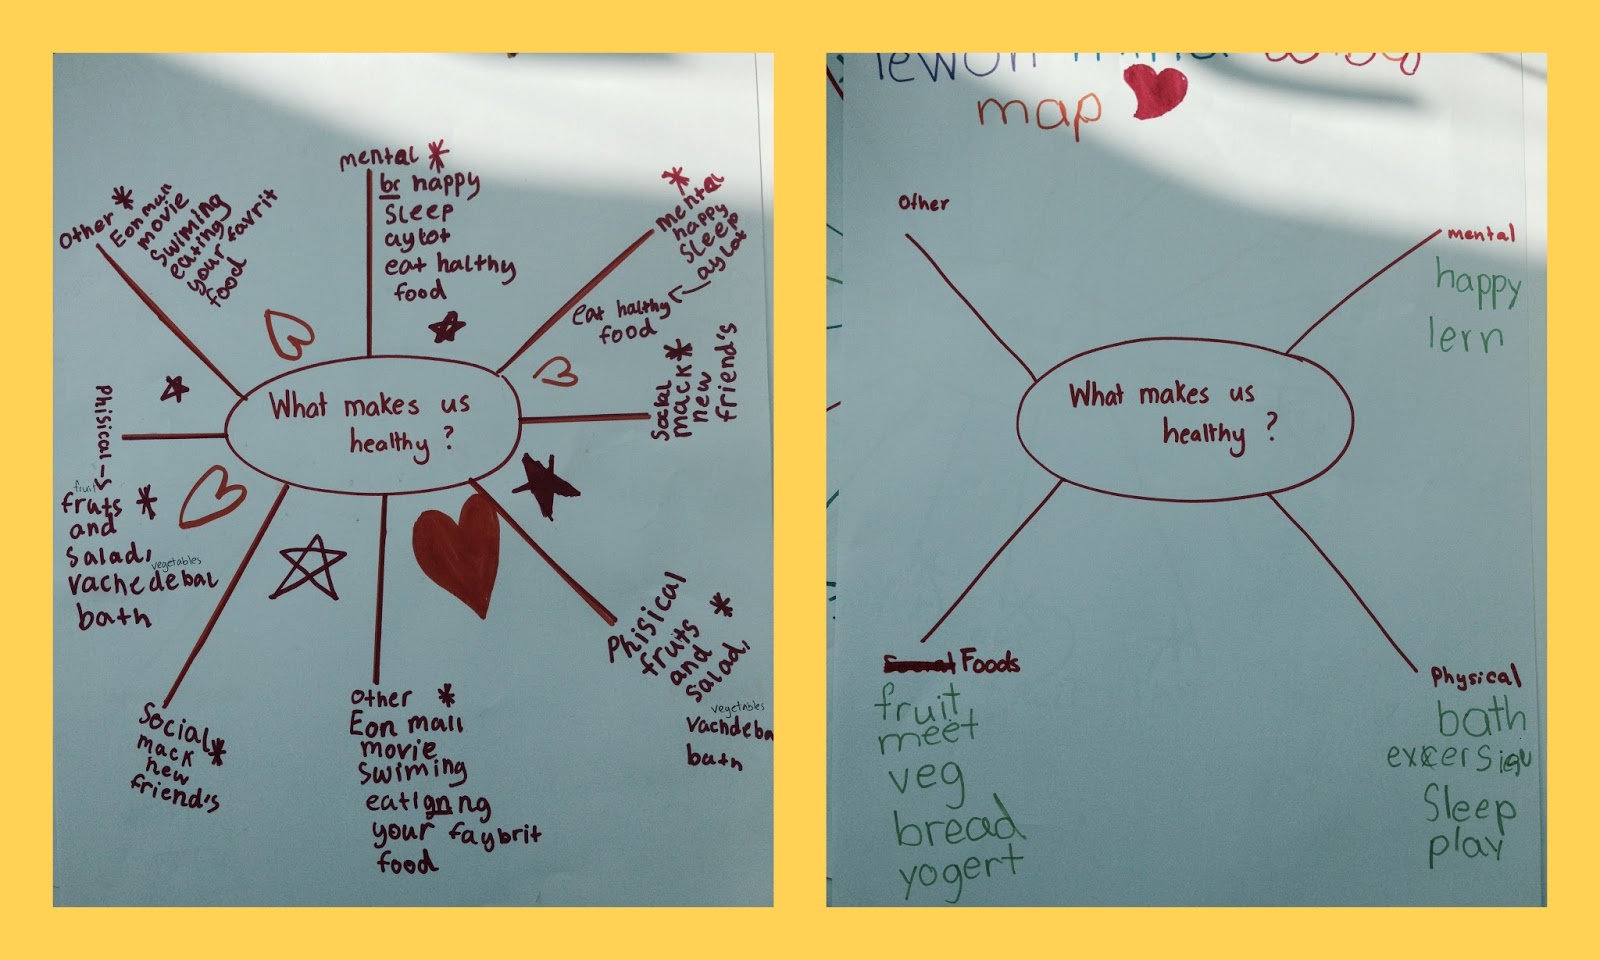 What makes us
healthy?
Other *
Eon mall
movie
swiming
eating
your favrit
food
mental *
br happy
sleep
aylot
eat halthy
food
mental *
happy
sleep
aylot
eat halthy
food
Social *
mack
new
friend's
Phisical
fruits
and
salad,
vegetables
bath
Other *
Eon mall
movie
swiming
eatigning
your faybrit
food
Social *
mack
new
friend's
Phisical
fruit
fruts *
and
salad,
vegetables
vachedebal
bath
map
What makes us
healthy?
Other
mental
happy
lern
Physical
bath
Sleep
play
Foods
fruit
meet
veg
bread
yogert